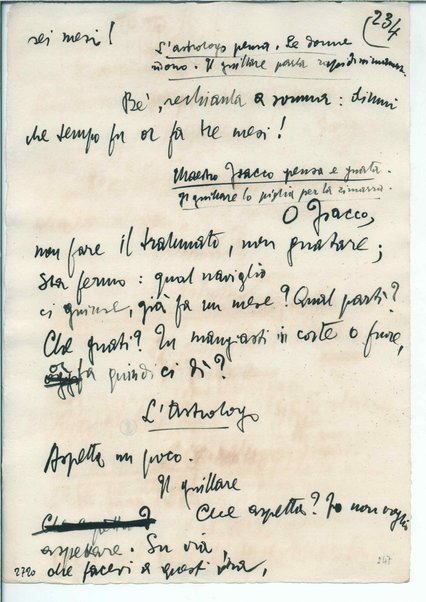 234
sei mesi!
L'astrologo pensa. Le donne
ridono. Il giullare parla rapidissimamente.
Be', rechianla a somma: dimmi
che tempo fu or fa tre mesi!
Maestro Isacco pensa e guata.
Il giullare lo piglia per la zimarra.
O Isacco,
non fare il tralunato, non guatare;
sta fermo: qual naviglio
ci giunse, già fa un mese? Qual partì?
Che guati? Tu mangiasti in corte o fuore,
fa quindici dì?
L'Astrologo
Aspetta un poco.
Il giullare
Che aspetta? Io non voglio
Che aspetta?
aspettare. Su via,
che facevi a quest' ora,
2720
247